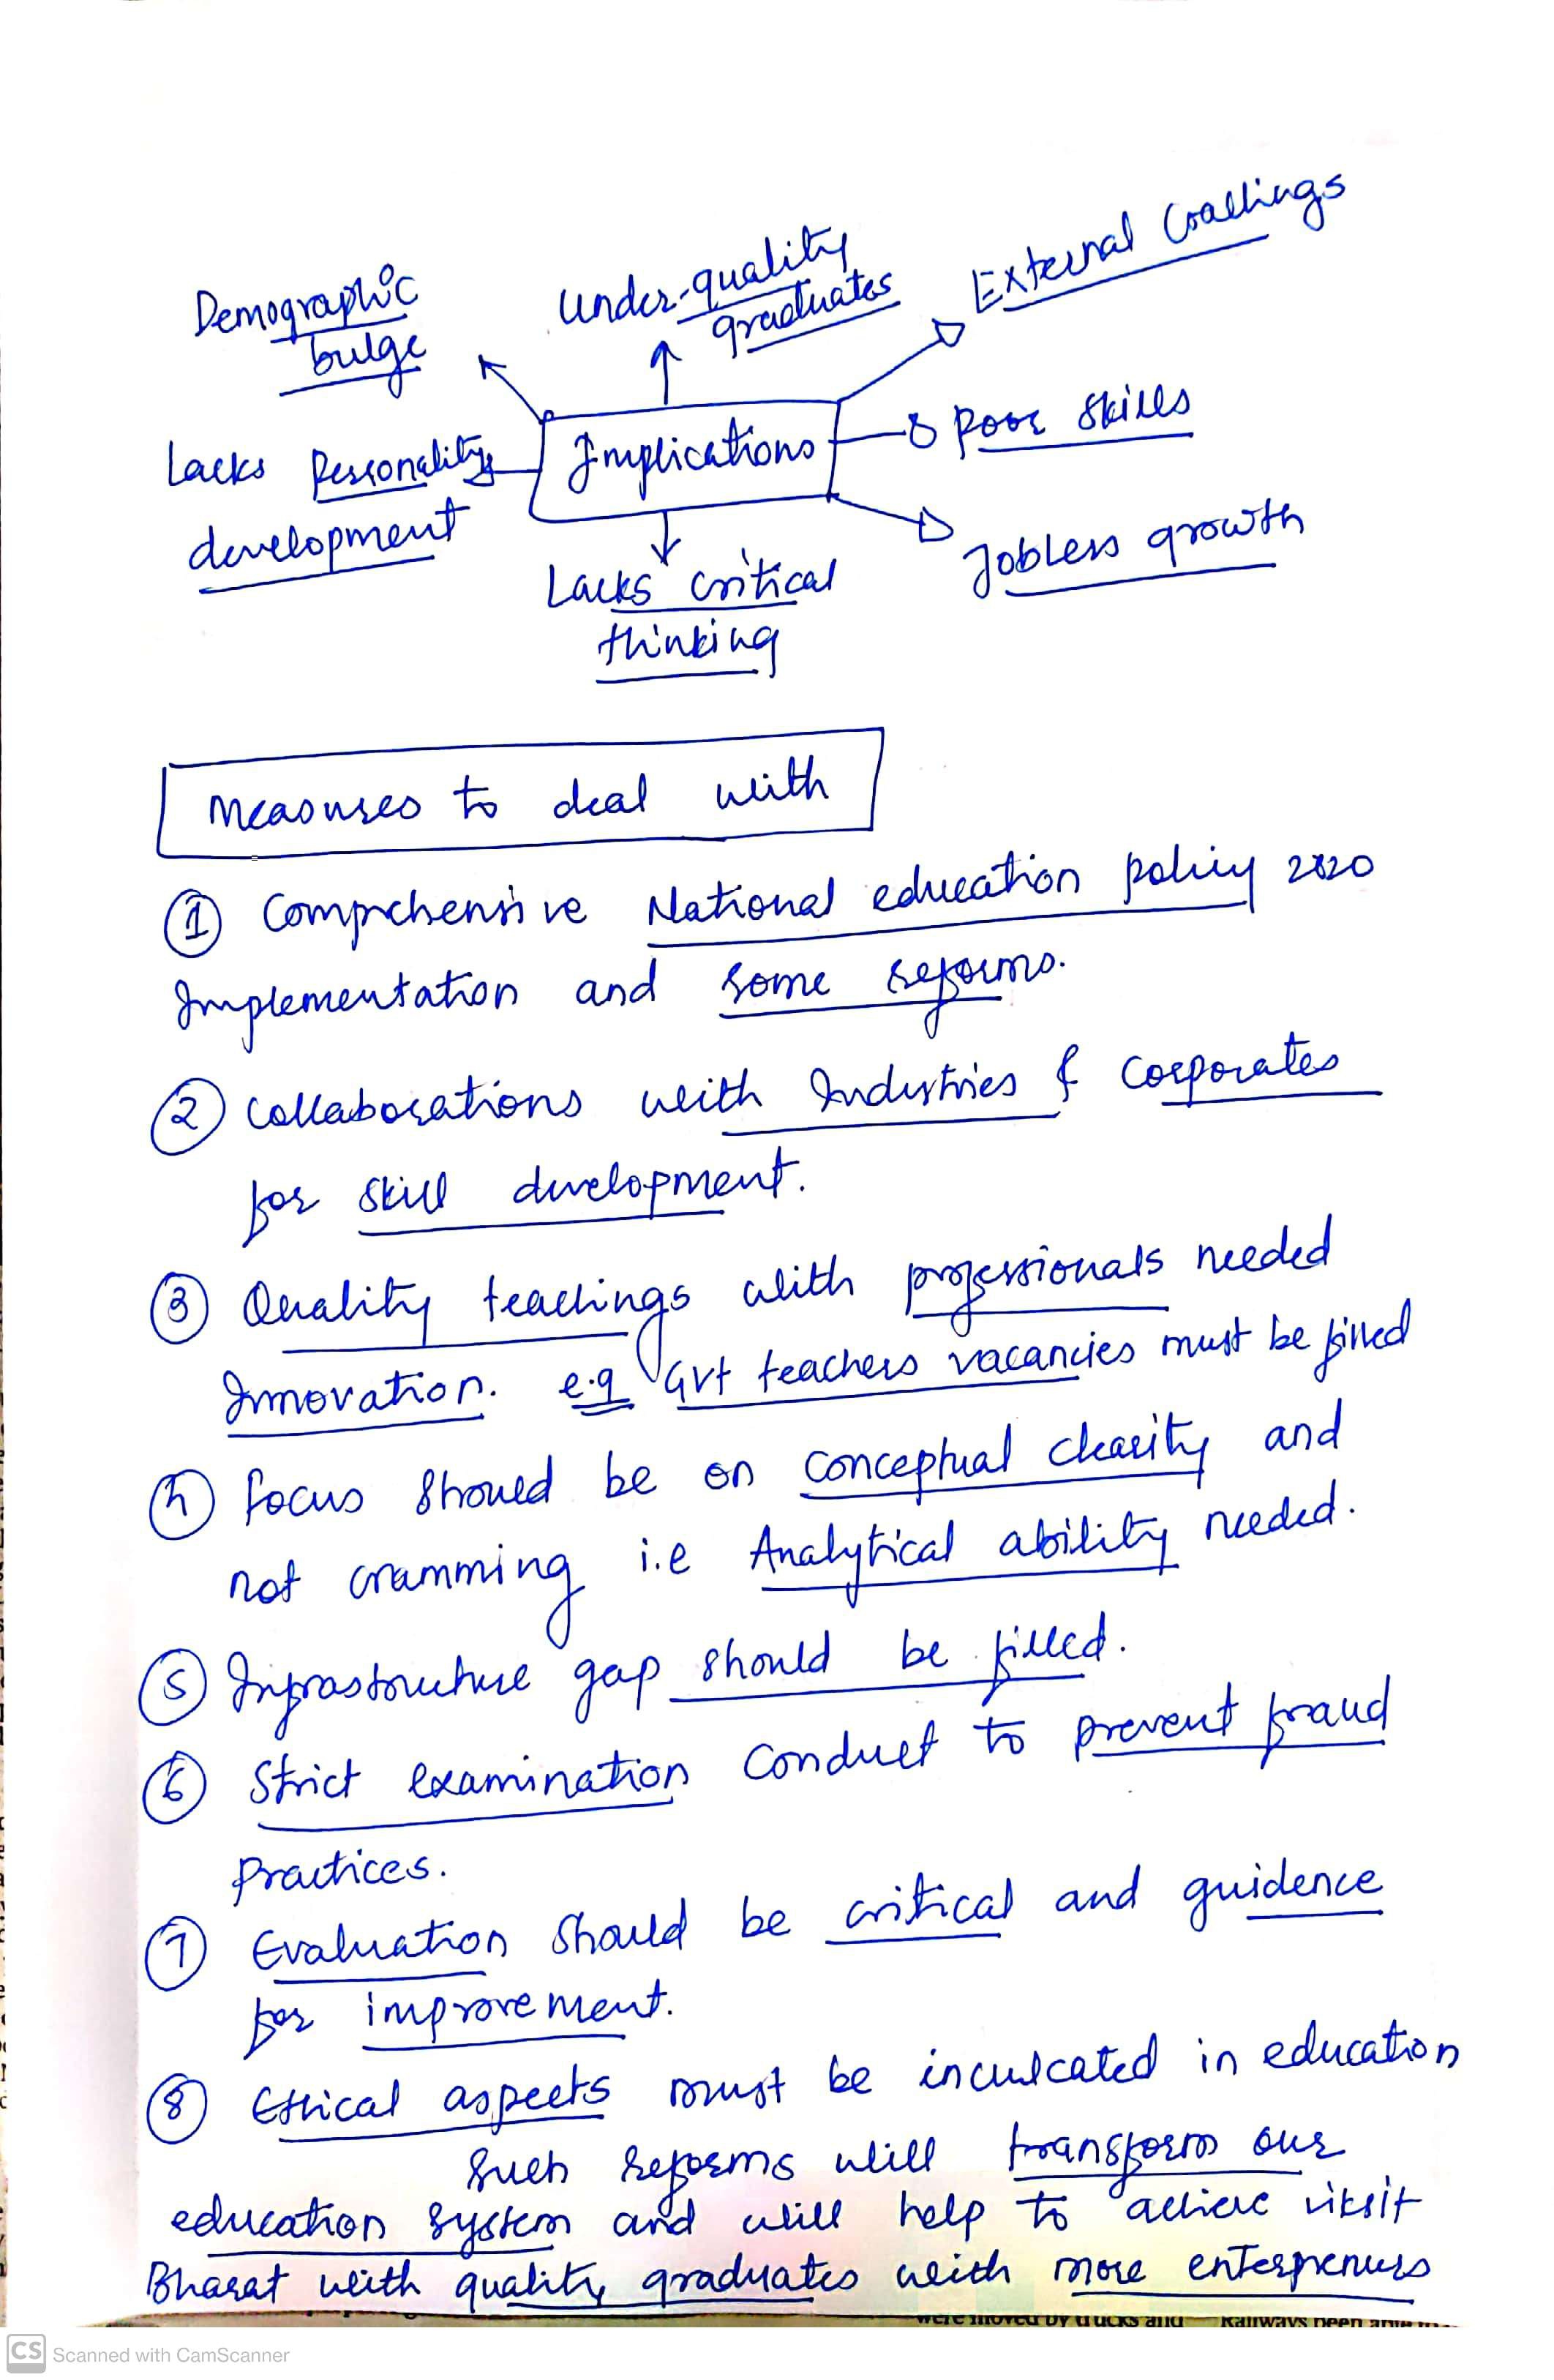 Demographic
bulge
Under-quality
graduates
External Coachings
Lacks Personality
development
Implications
Poor Skills
Jobless growth
Lacks critical
thinking
Measures to deal with
① Comprehensive National education policy 2020
Implementation and some reforms.
② Collaborations with Industries & Corporates
for skill development.
③ Quality teachings with professionals needed
Innovation. e.g Gvt teachers vacancies must be filled
④ Focus should be on conceptual clearity and
not cramming i.e Analytical ability needed.
⑤ Infrastructure gap should be filled.
⑥ Strict examination conduct to prevent fraud
Practices.
⑦ Evaluation should be critical and guidence
for improvement.
⑧ Ethical aspects must be inculcated in education
Such reforms will transform our
education system and will help to achieve viksit
Bharat with quality graduates with more enterprenuers
were moved by trucks and
Railways been able
CS Scanned with CamScanner